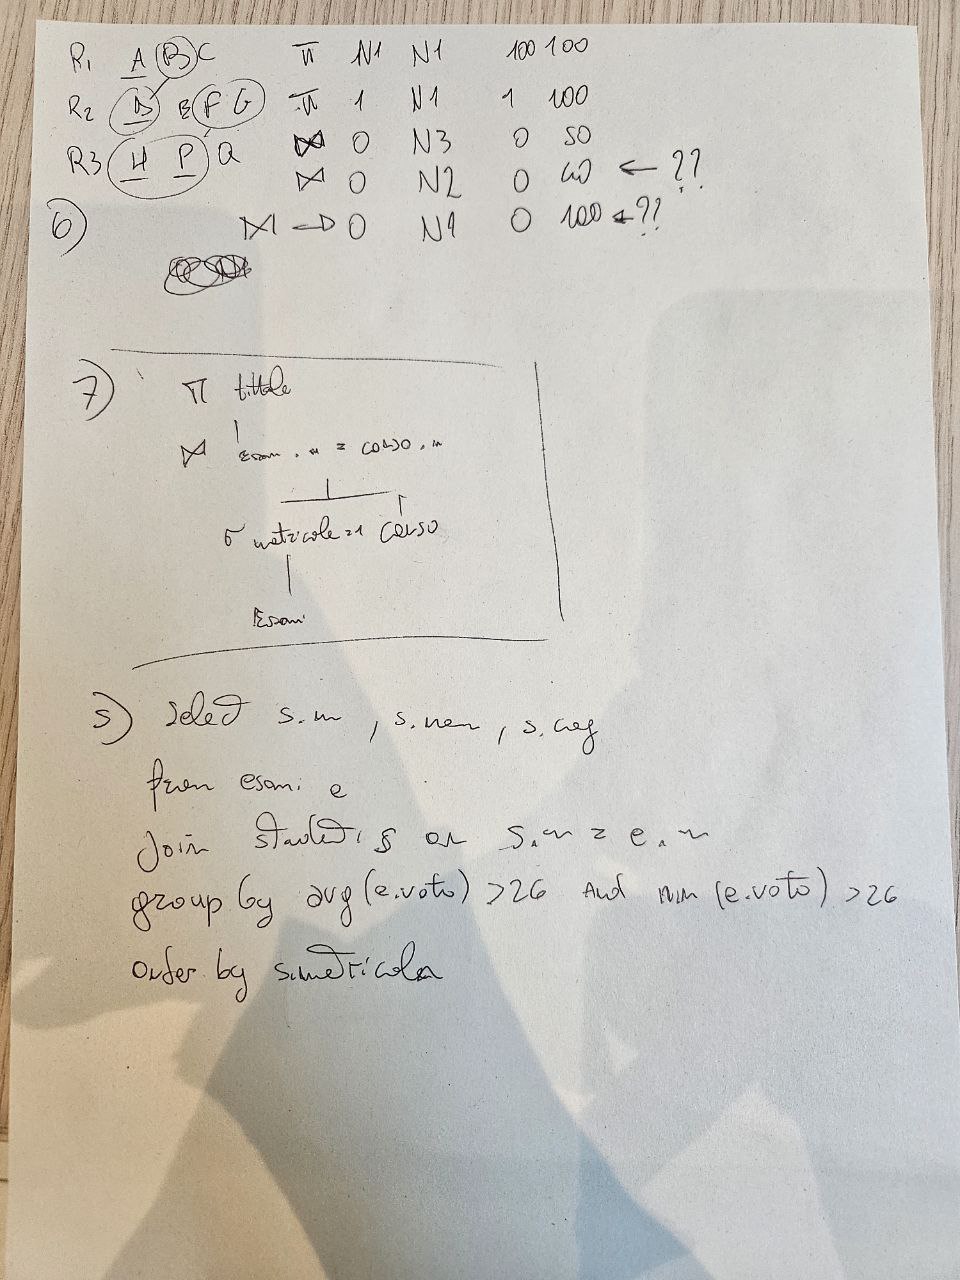 R1 A B C π N1 N1 100 100
R2 D E F G π 1 N1 1 100
R3 H P Q ⋈ 0 N3 0 50
⋈ 0 N2 0 40 ← ??
6) ⋈ → 0 N1 0 100 ← ??
7) π
⋈ Esam . m = corso . m
σ matricola=1 Corso
Esami
5) Select s.m , s.nom , s.cog
from esami e
Join studenti s on s.m = e.m
group by avg (e.voto) >26 And min (e.voto) >26
order by s.matricola